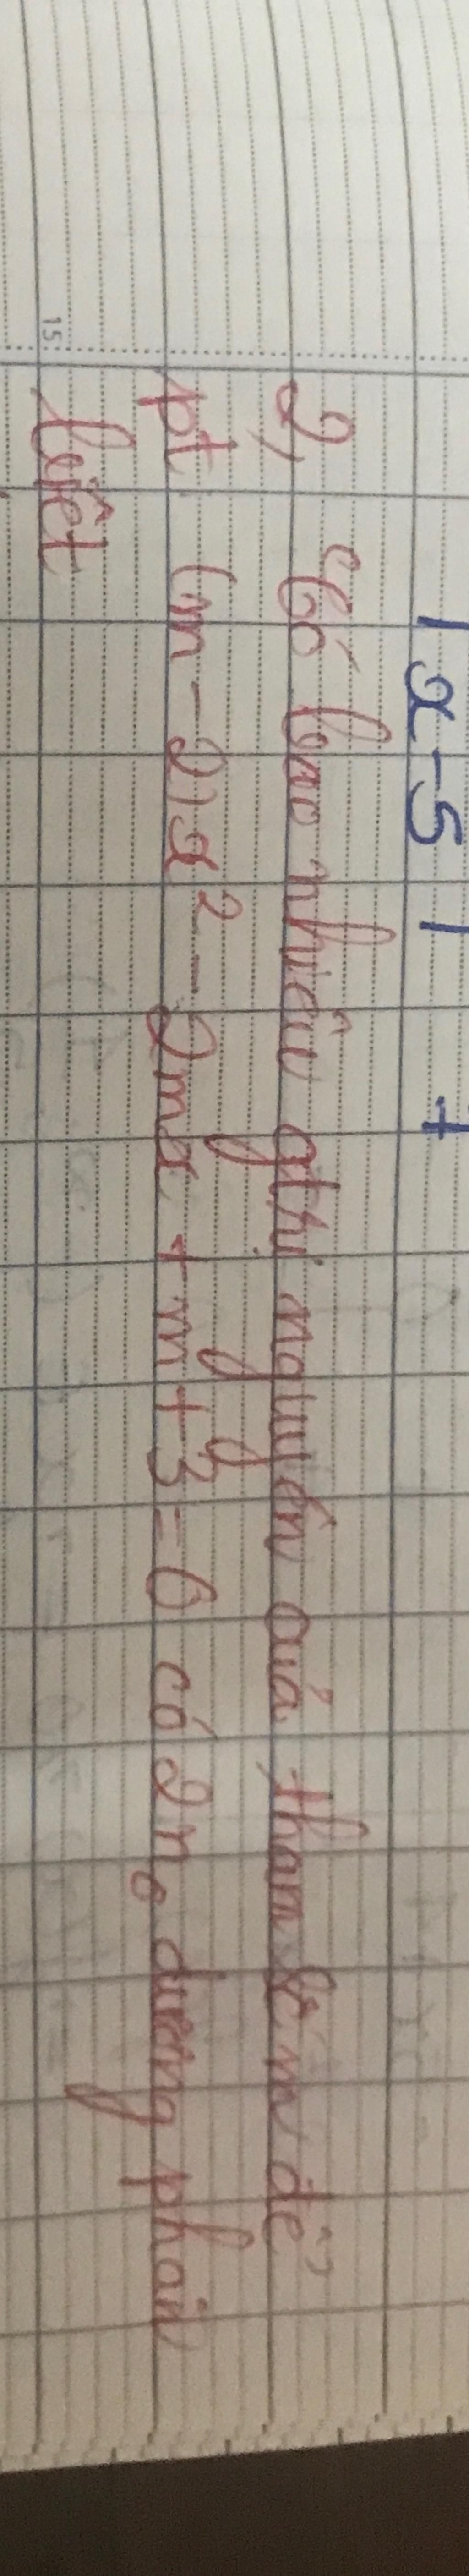 |x-5| +
2, Có bao nhiêu gtri nguyên của tham số m để
pt (m-2)x²-2mx+m+3=0 có 2no dương phân
biệt
15